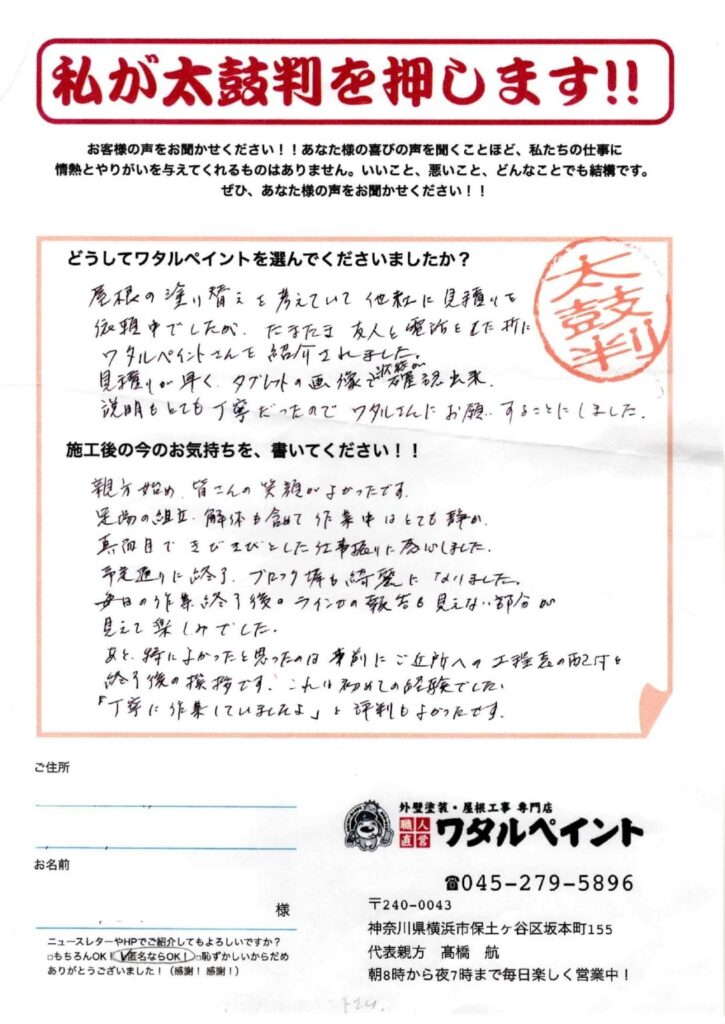 私が太鼓判を押します!!
お客様の声をお聞かせください！！あなた様の喜びの声を聞くことほど、私たちの仕事に
情熱とやりがいを与えてくれるものはありません。いいこと、悪いこと、どんなことでも結構です。
ぜひ、あなた様の声をお聞かせください！！
どうしてワタルペイントを選んでくださいましたか？
太鼓判
屋根の塗り替えを考えていて他社に見積りを
依頼中でしたが、たまたま友人と電話をした折に
ワタルペイントさんを紹介されました。
見積りが早く、タブレットの画像で状態が確認出来、
説明もとても丁寧だったのでワタルさんにお願いすることにしました。
施工後の今のお気持ちを、書いてください！！
親方始め、皆さんの笑顔がよかったです。
足場の組立、解体も含めて作業中はとても静か、
真面目できびきびとした仕事振りに感心しました。
予定通りに終了、ブロック塀も綺麗になりました。
毎日の作業終了後のラインでの報告も見えない部分が
見えて楽しみでした。
あと、特によかったと思ったのは事前にご近所への工程表の配付と
終了後の挨拶です。これは初めての経験でした。
「丁寧に作業していましたよ」と評判もよかったです。
ご住所
お名前
様
ニュースレターやHPでご紹介してもよろしいですか？
□もちろんOK！□匿名ならOK！□恥ずかしいからだめ
ありがとうございました！（感謝！感謝！）
外壁塗装・屋根工事 専門店
職人直営 ワタルペイント
☎045-279-5896
〒240-0043
神奈川県横浜市保土ヶ谷区坂本町155
代表親方　髙橋　航
朝8時から夜7時まで毎日楽しく営業中！